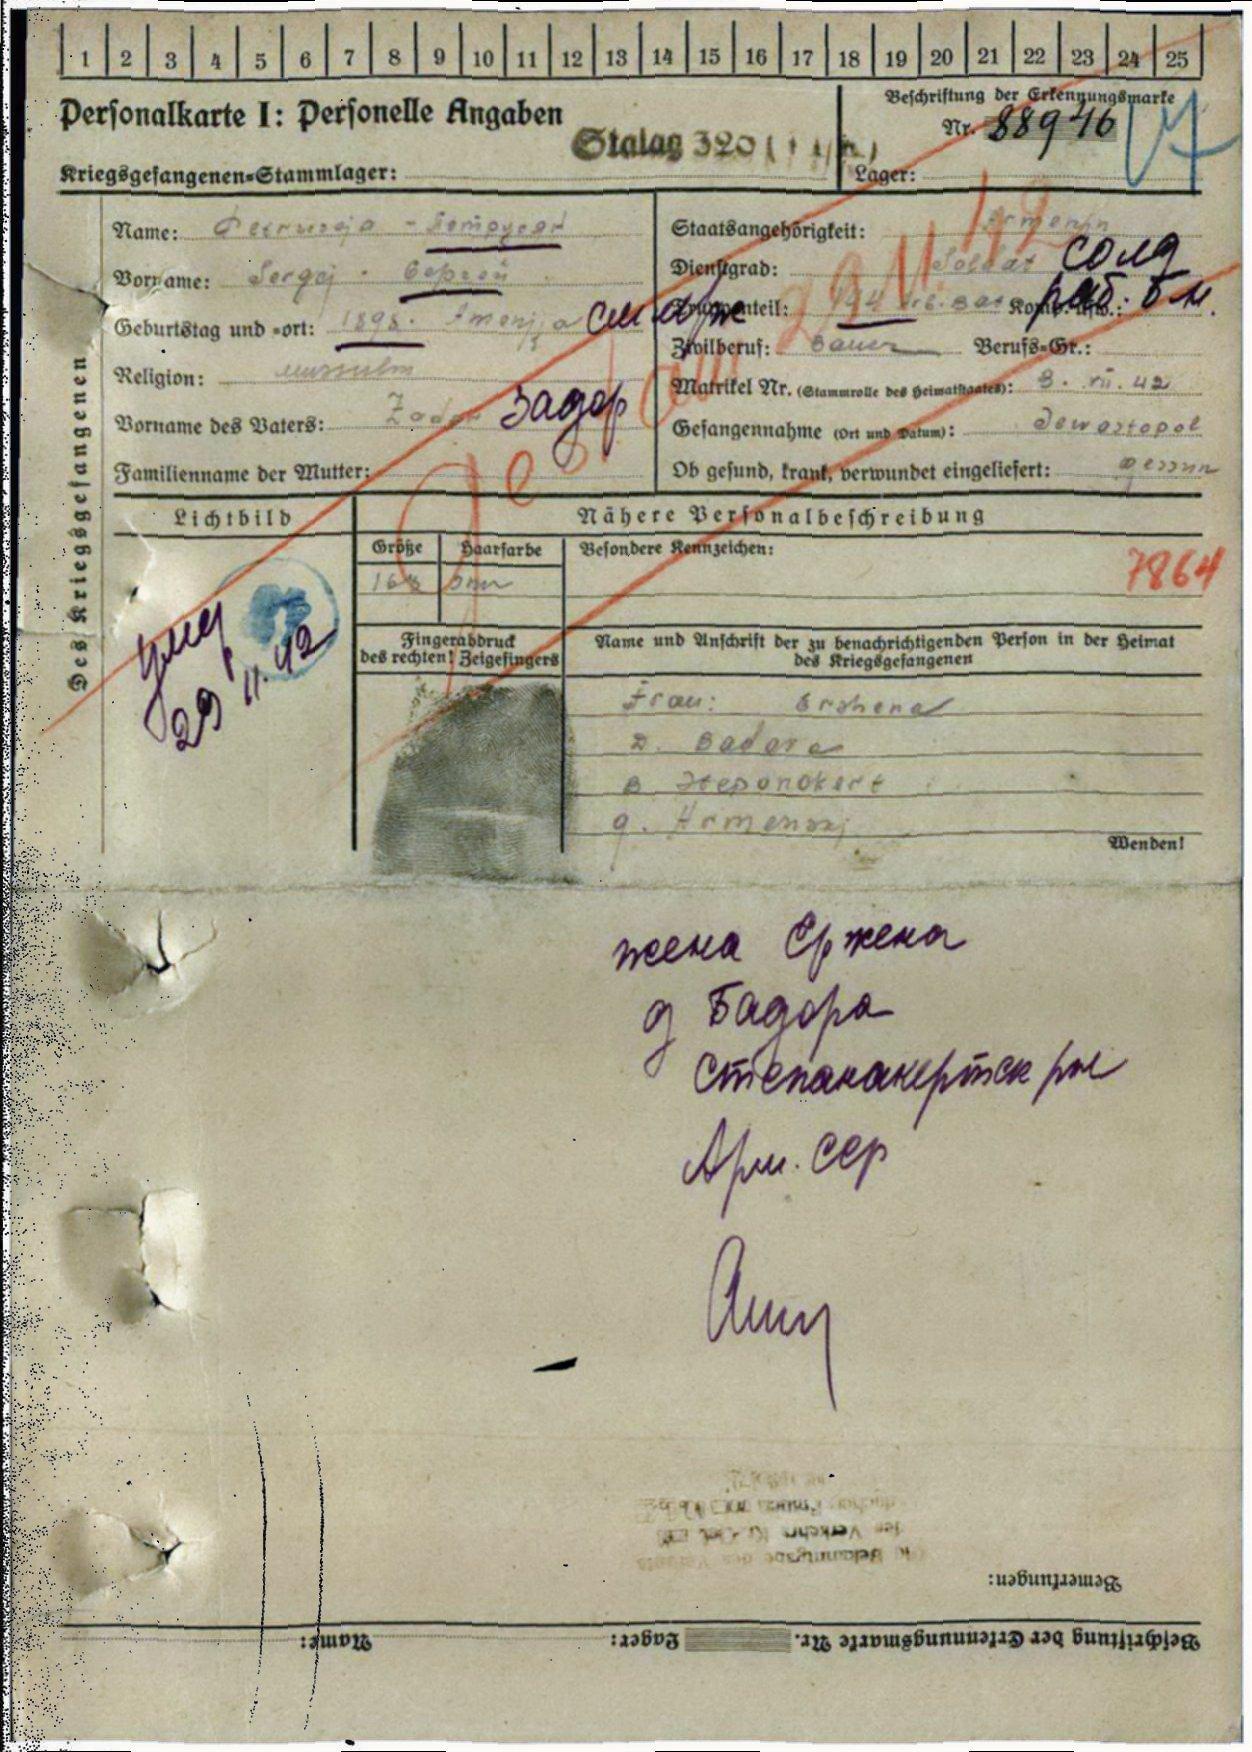 1 2 3 4 5 6 7 8 9 10 11 12 13 14 15 16 17 18 19 20 21 22 23 24 25
Personalkarte I: Personelle Angaben
Beschriftung der Erkennungsmarke
Nr. 88946
Stalag 320
Kriegsgefangenen-Stammlager:
Lager:
Des Kriegsgefangenen
Name:
Staatsangehörigkeit: Armenin
Vorname: Sergej Сергей
Dienstgrad: Soldat солд
Geburtstag und -ort: 1898. см. об
Truppenteil: 194 Arb. Bat Komp. usw.: раб. б-н.
Religion:
Zivilberuf: Bauer Berufs-Gr.:
Matrikel Nr. (Stammrolle des Heimatstaates): 3. VII. 42
Vorname des Vaters: Zador Задор
Gefangennahme (Ort und Datum): Sewastopol
Familienname der Mutter:
Ob gesund, krank, verwundet eingeliefert:
gest. am 29.11.42
Lichtbild
Nähere Personalbeschreibung
Größe Haarfarbe Besondere Kennzeichen:
168
7864
умер
29.11.42
Fingerabdruck
des rechten! Zeigefingers
Name und Anschrift der zu benachrichtigenden Person in der Heimat
des Kriegsgefangenen
Frau: Srshena
D. Badara
Armenskj
Wenden!
жена Сржена
д Бадора
Степанакертск рн
Арм. ССР
Bemerkungen:
Beschriftung der Erkennungsmarke Nr. Lager: Name: